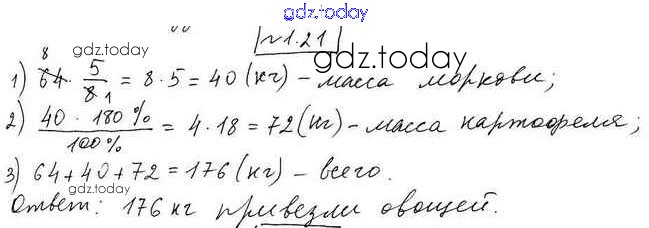 gdz.today
№1.21
gdz.today
gdz.today
1) 64 · 5/8 = 8 · 5 = 40 (кг) – масса моркови;
2) 40 · 180% / 100% = 4 · 18 = 72 (кг) – масса картофеля;
3) 64 + 40 + 72 = 176 (кг) – всего.
gdz.today
Ответ: 176 кг привезли овощей.